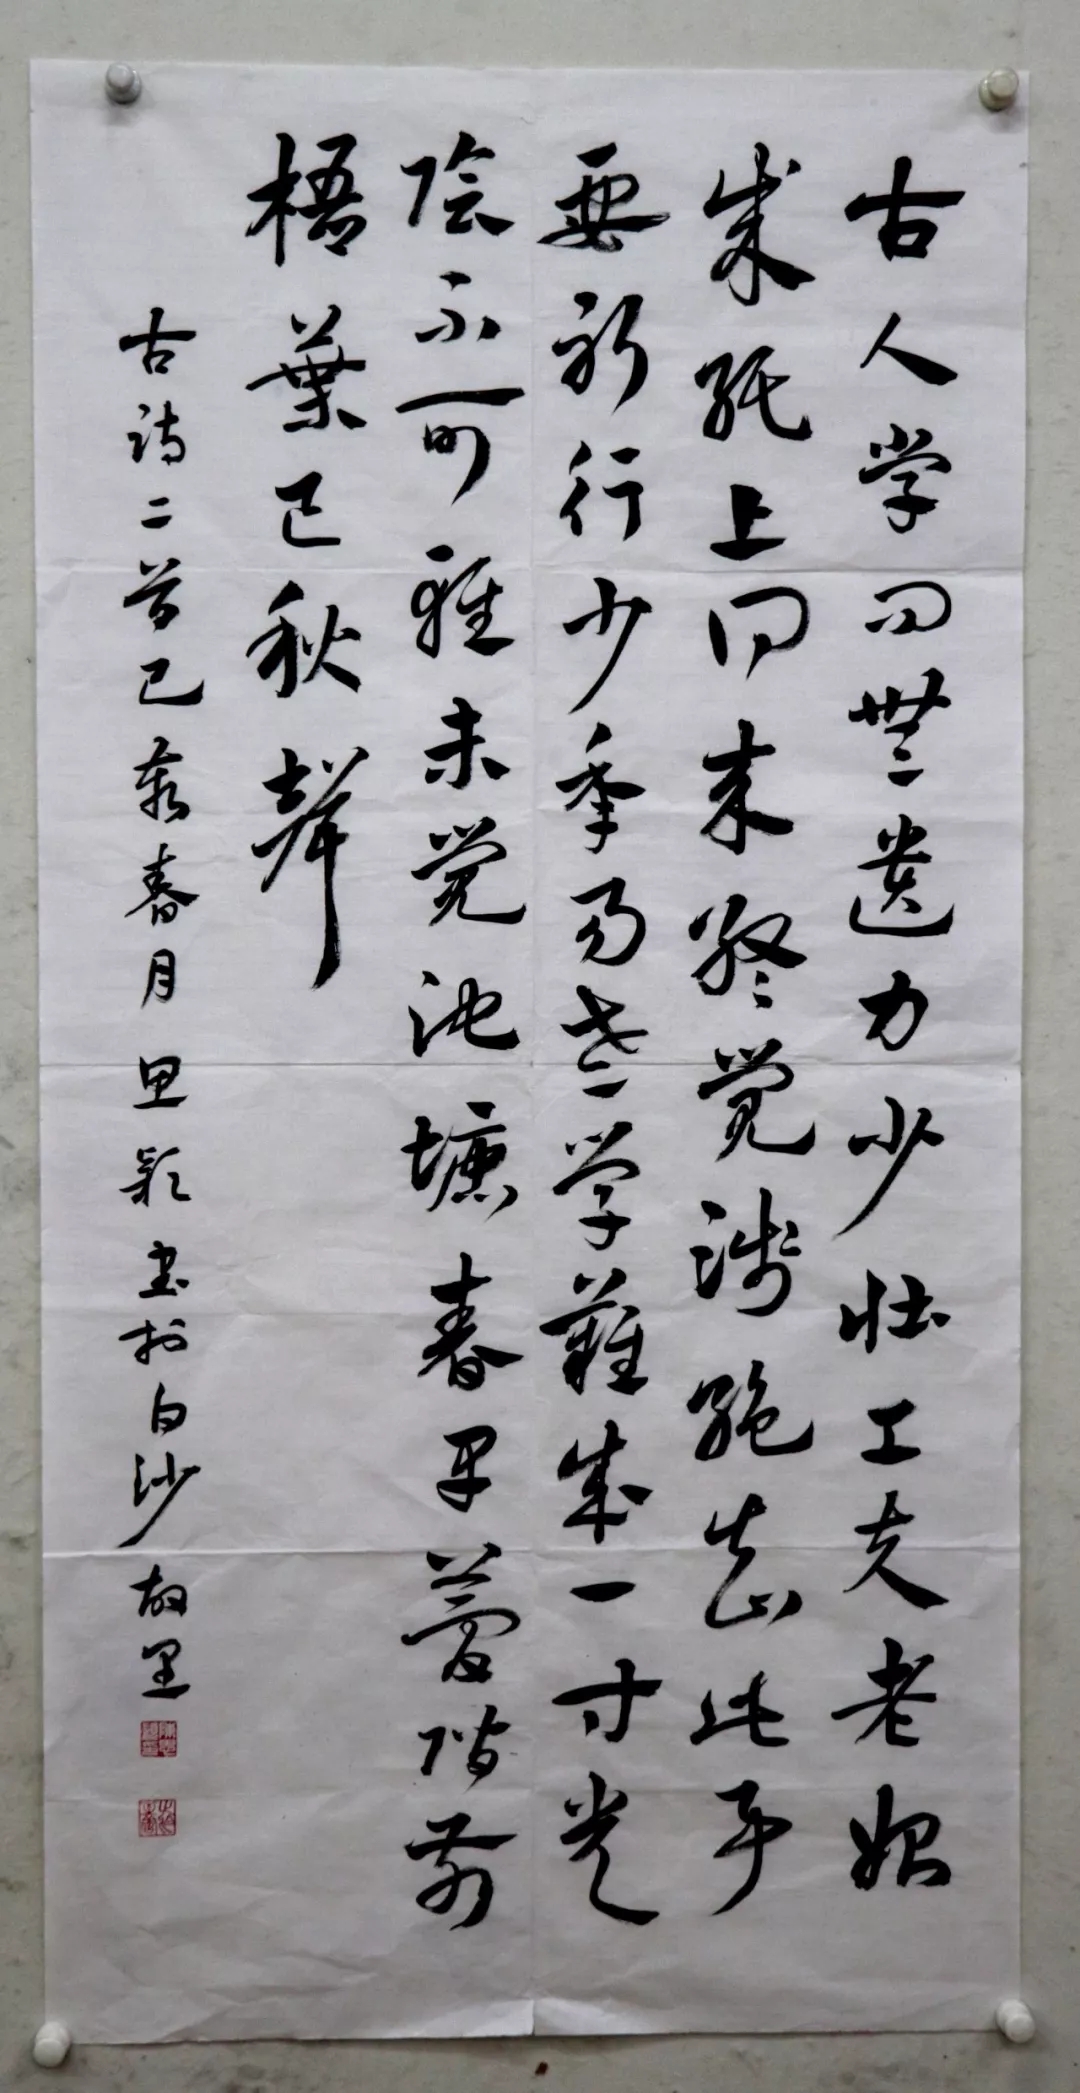 古人学问無遗力少壮工夫老始
成纸上问来终觉浅绝知此事
要躬行少年易老学難成一寸光
陰不可輕未觉池塘春草夢階前
梧葉已秋聲
古诗二首己亥春月思颖书於白沙故里